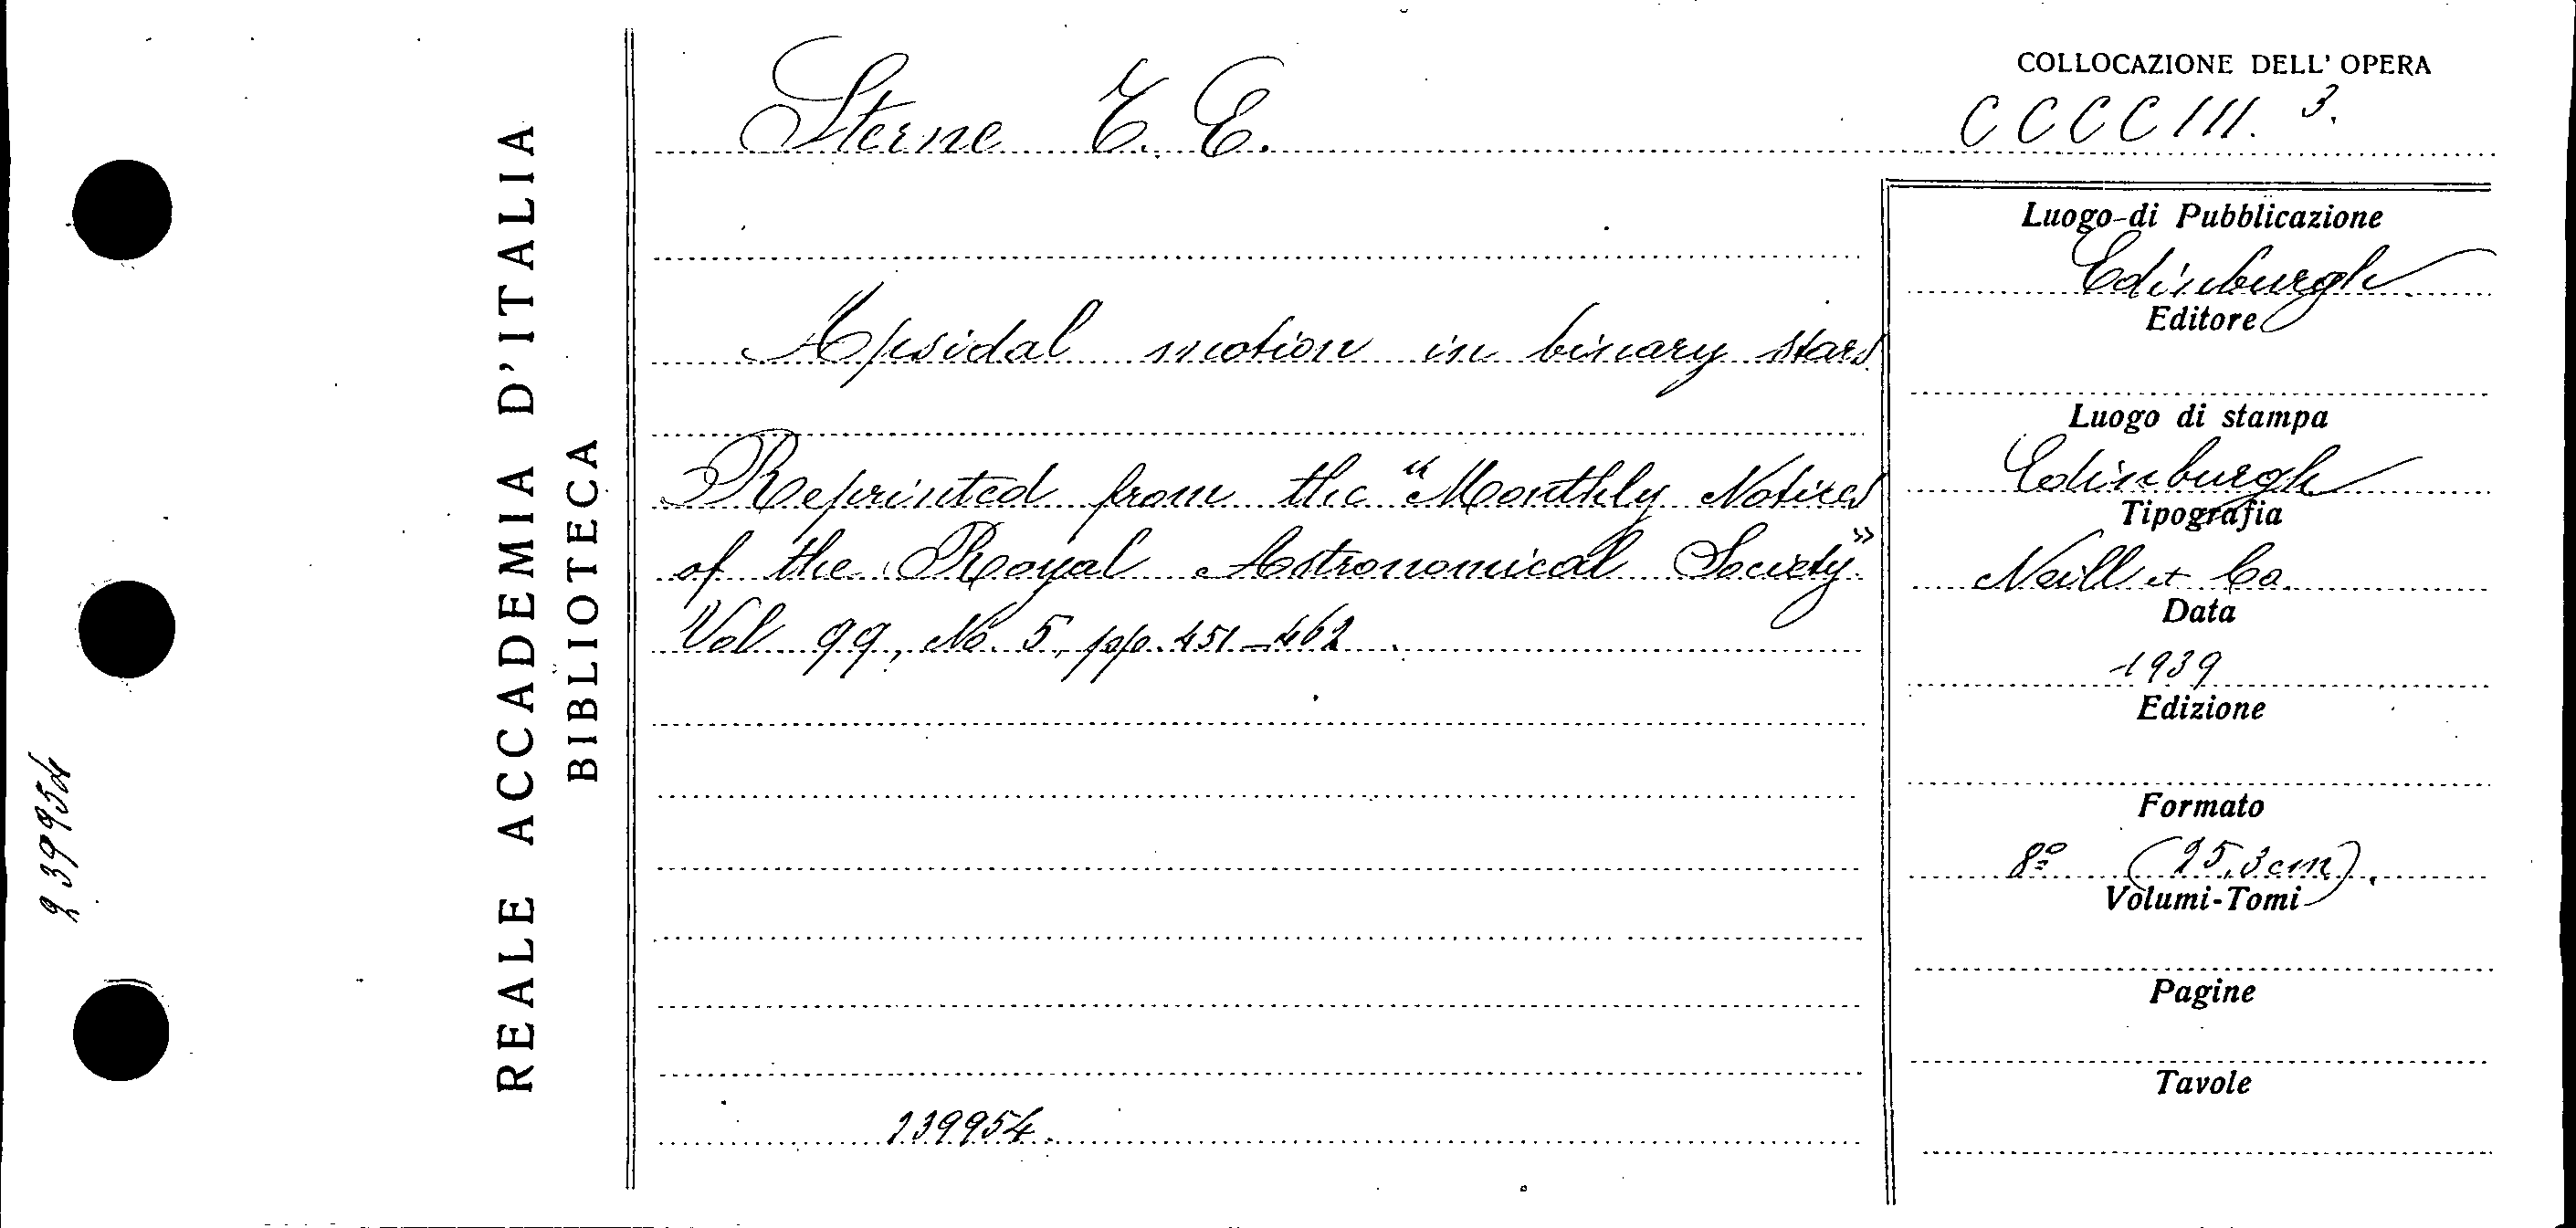 239954
REALE ACCADEMIA D'ITALIA
BIBLIOTECA
Sterne T. E.
Apsidal motion in binary stars.
Reprinted from the "Monthly Notices
of the Royal Astronomical Society"
Vol 99, No. 5, pp. 451-462
239954.
COLLOCAZIONE DELL' OPERA
CCCCIII. 3.
Luogo di Pubblicazione
Edinburgh
Editore
Luogo di stampa
Edinburgh
Tipografia
Neill et Co.
Data
1939
Edizione
Formato
8º (25,3cm).
Volumi-Tomi
Pagine
Tavole